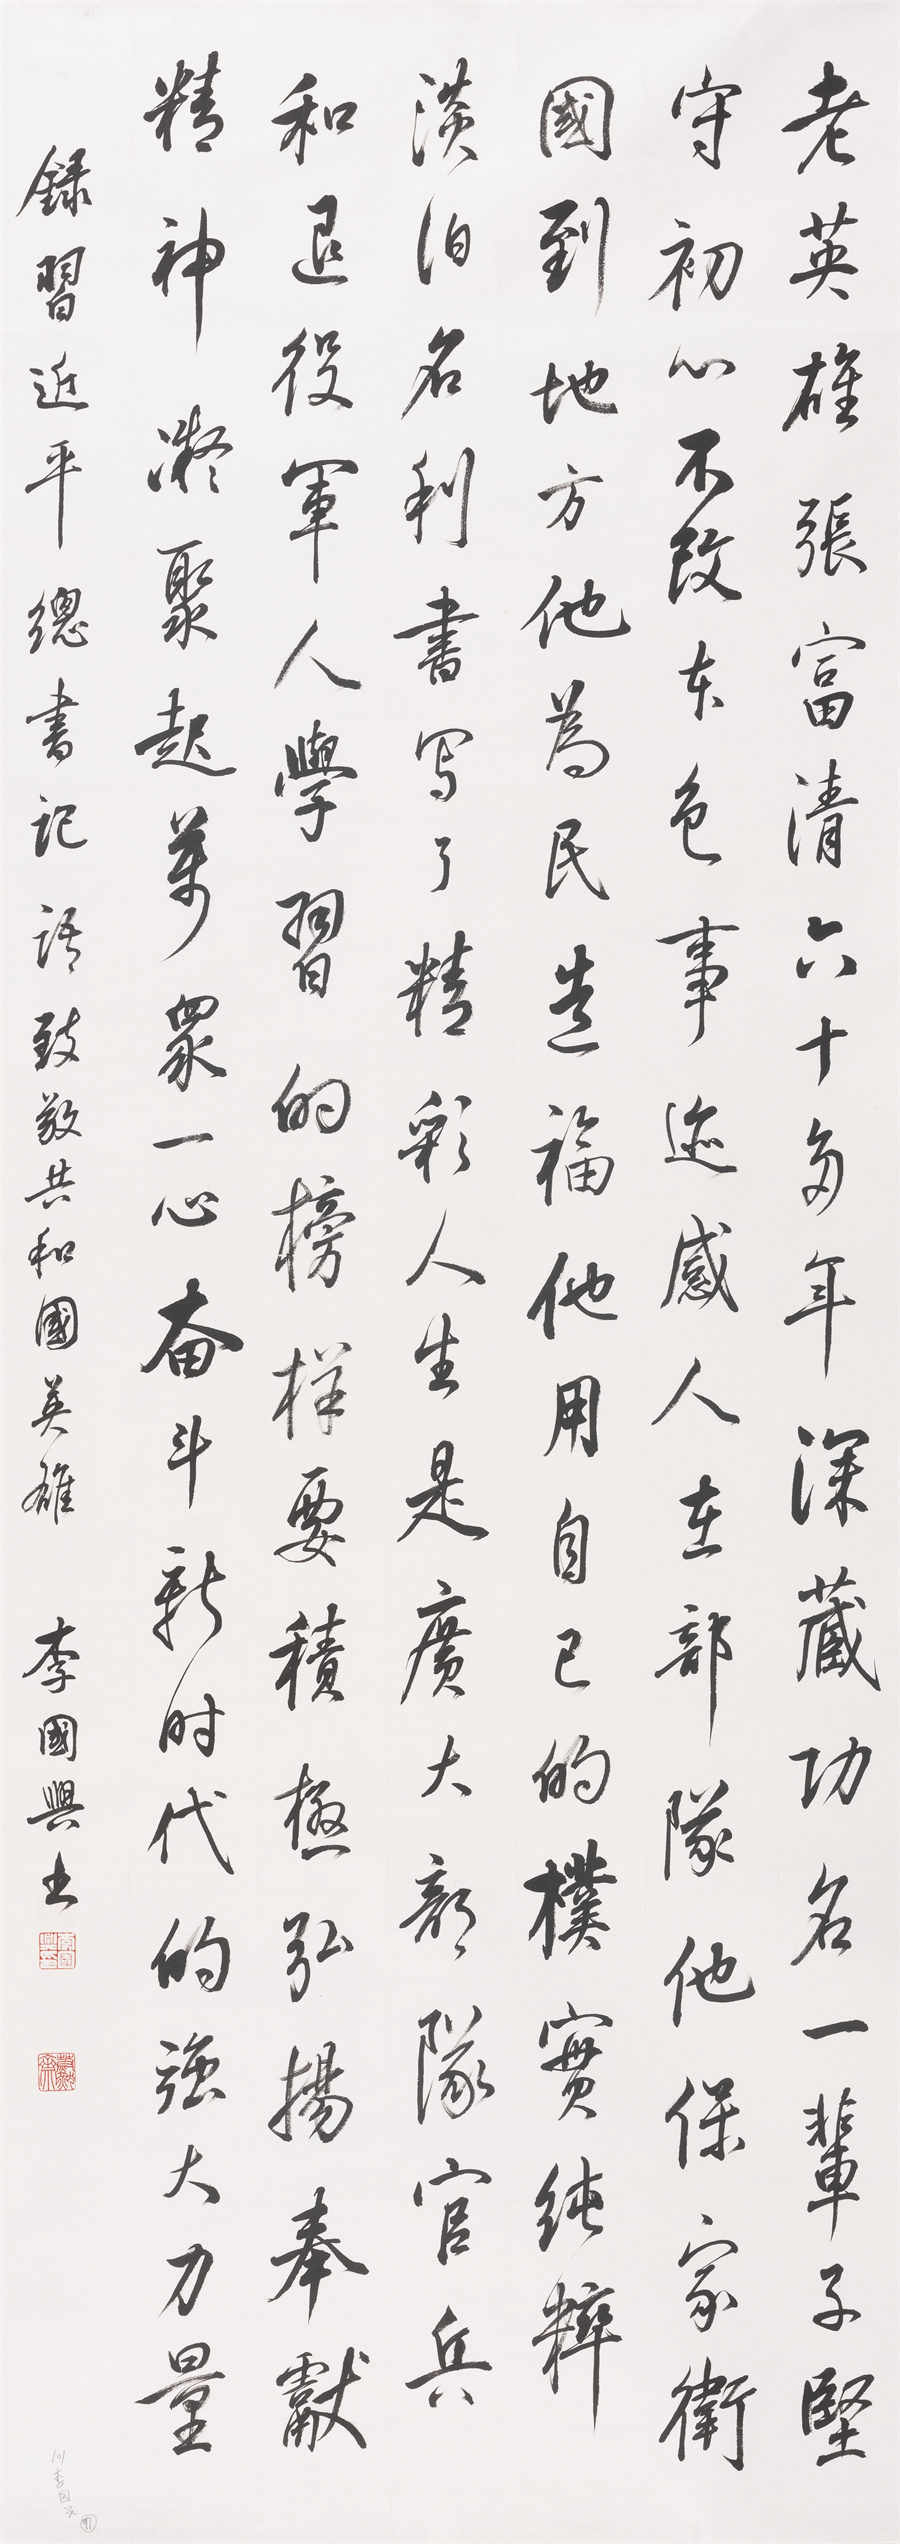 老英雄張富清六十多年深藏功名一輩子堅
守初心不改本色事迹感人在部隊他保家衛
國到地方他為民造福他用自己的樸實純粹
淡泊名利書写了精彩人生是廣大部隊官兵
和退役軍人學習的榜样要積極弘揚奉獻
精神凝聚起萬眾一心奋斗新时代的强大力量
録習近平總書記語致敬共和國英雄 李國興书